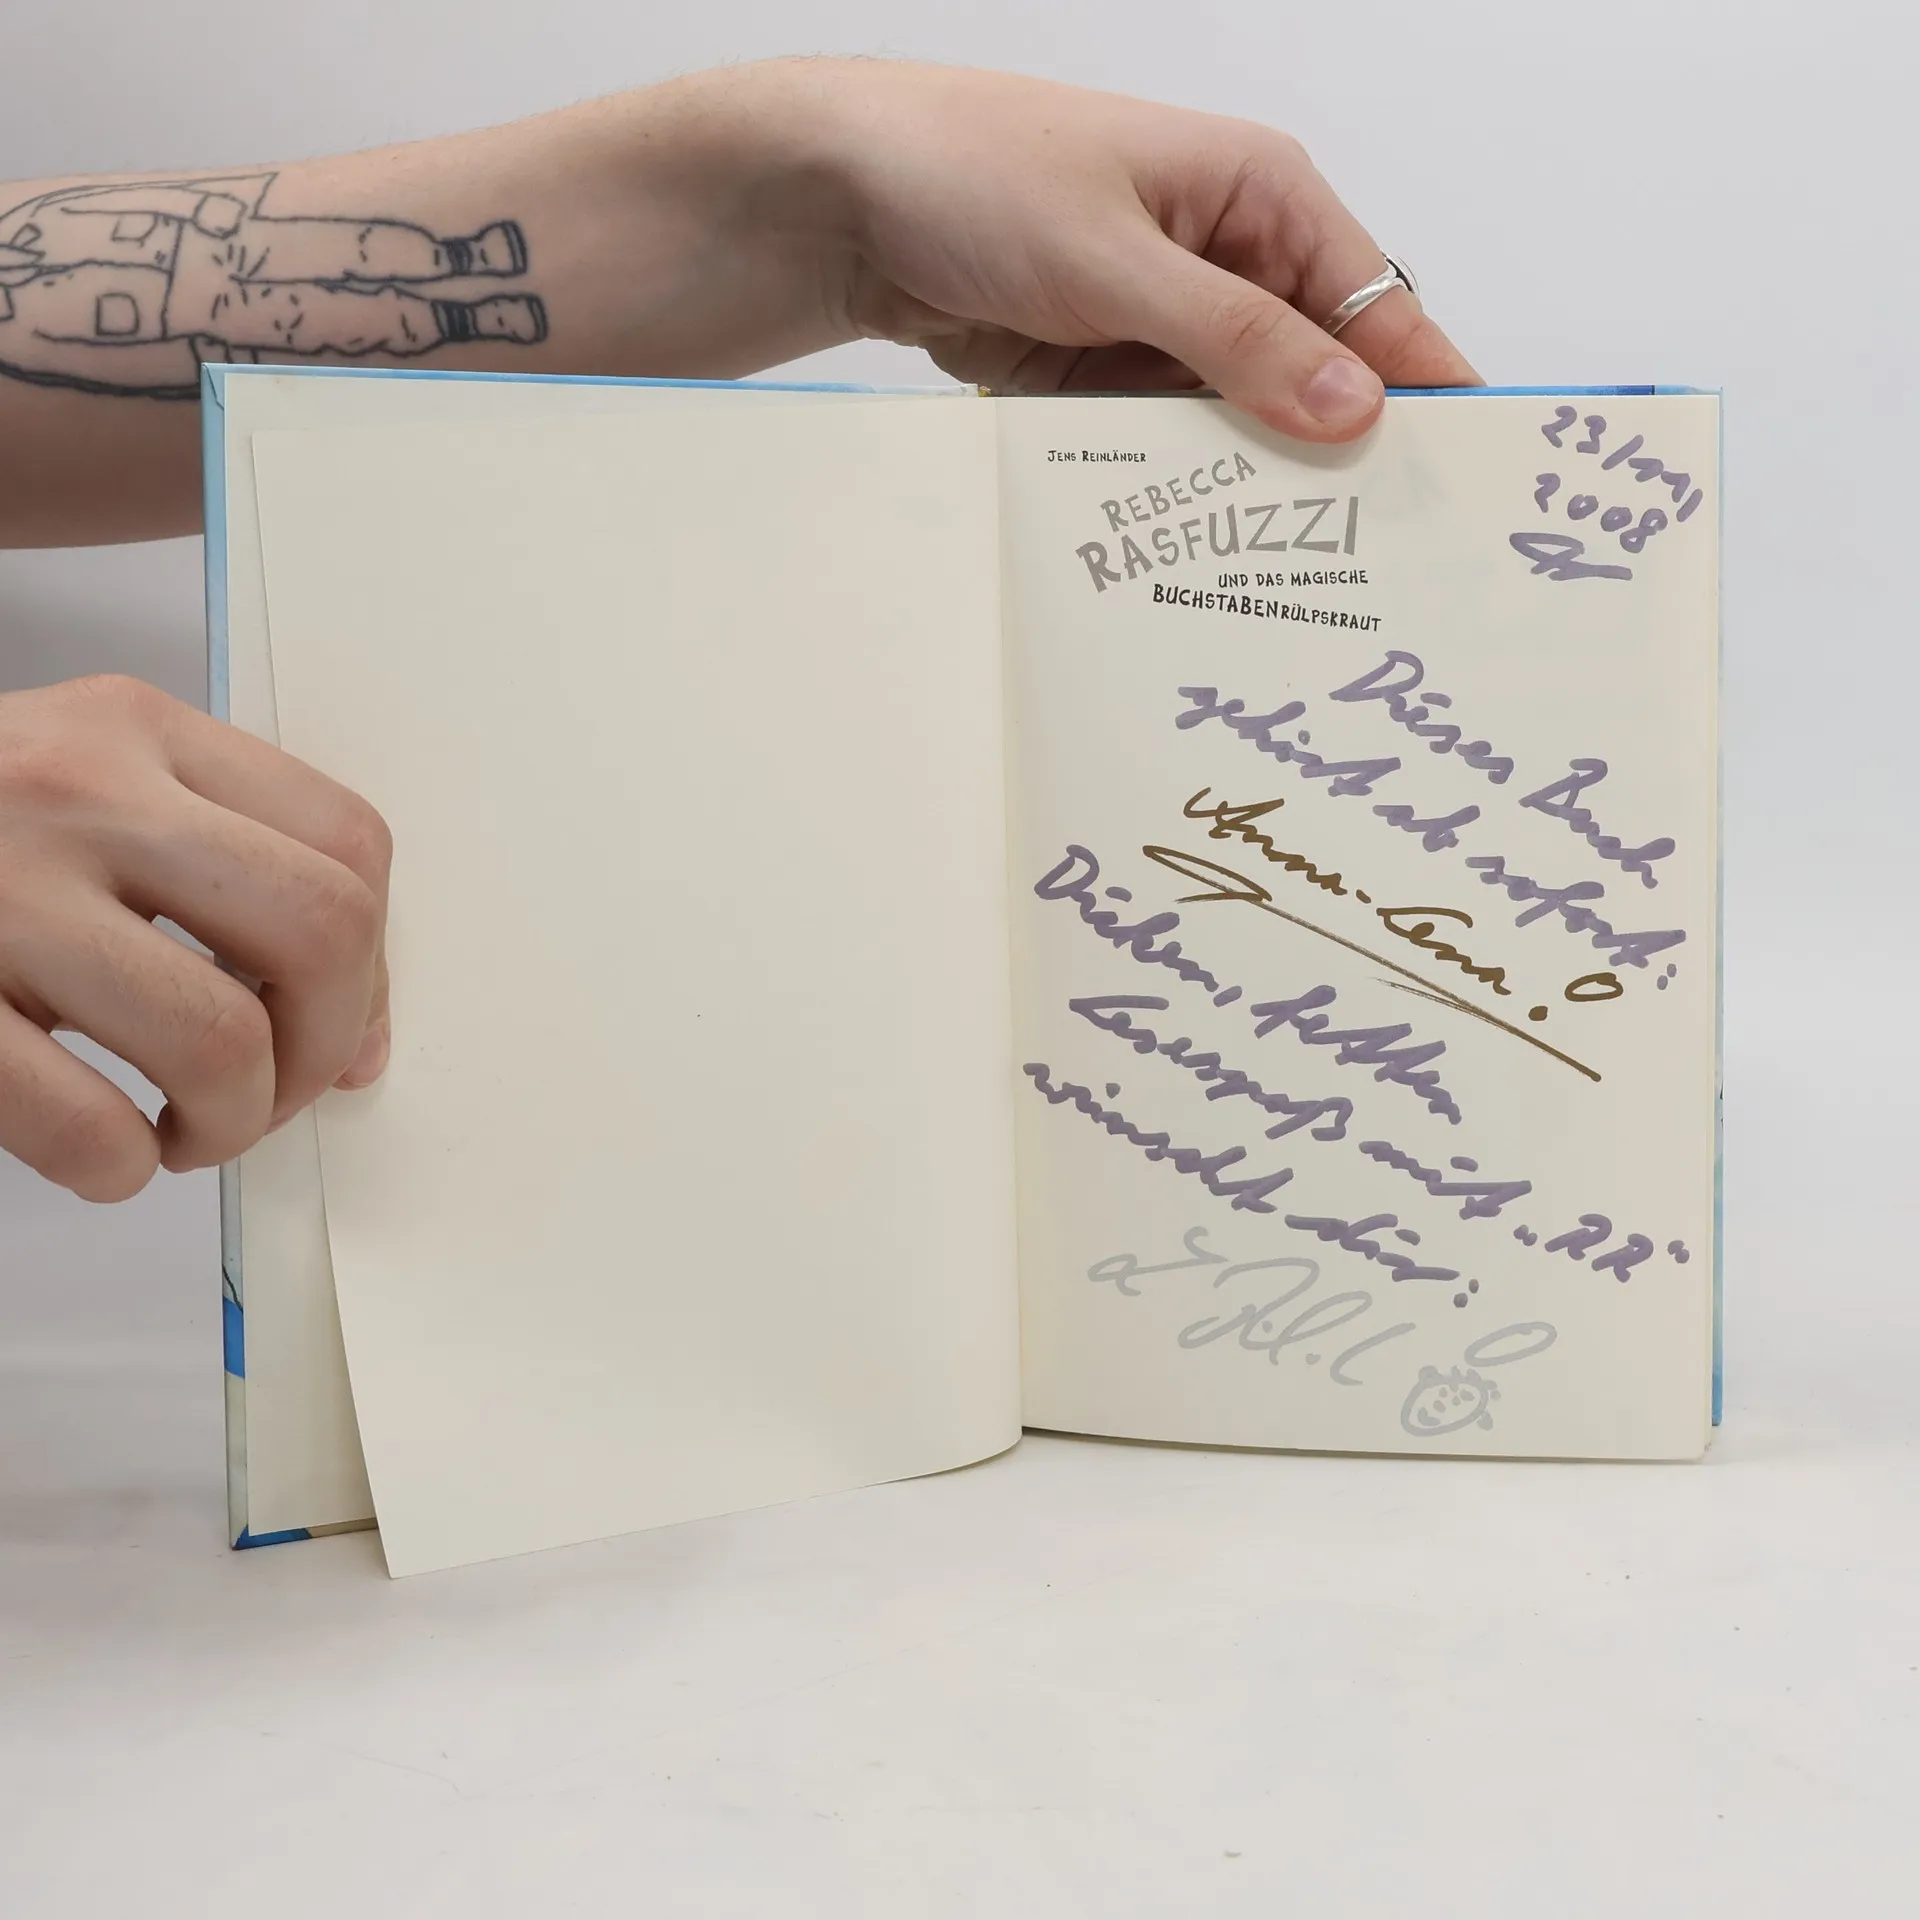 JENS REINLÄNDER
REBECCA
RASFUZZI
UND DAS MAGISCHE
BUCHSTABENRÜLPSKRAUT
23/
2008
Dieses Buch
gehört ab sofort:
Anna-Lena.
Dicken, fetten
Lesespaß mit „RR“
wünscht dir: